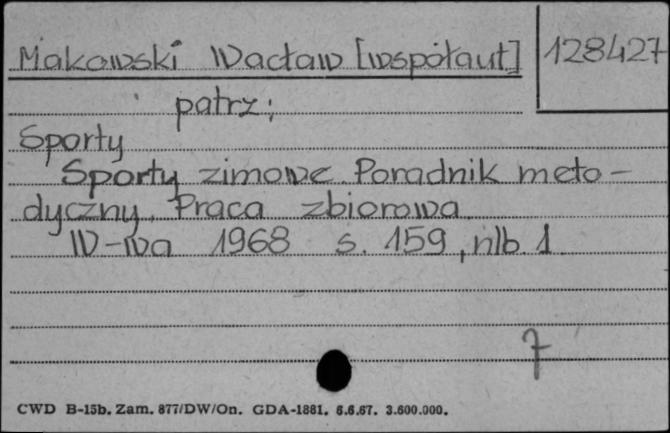 Makowski Wacław [współaut] 128427
patrz:
Sporty
Sporty zimowe. Poradnik meto-
dyczny. Praca zbiorowa
W-wa 1968 s. 159, nlb. 1
7
CWD B-15b. Zam. 877/DW/On. GDA-1881. 6.6.67. 3.600.000.